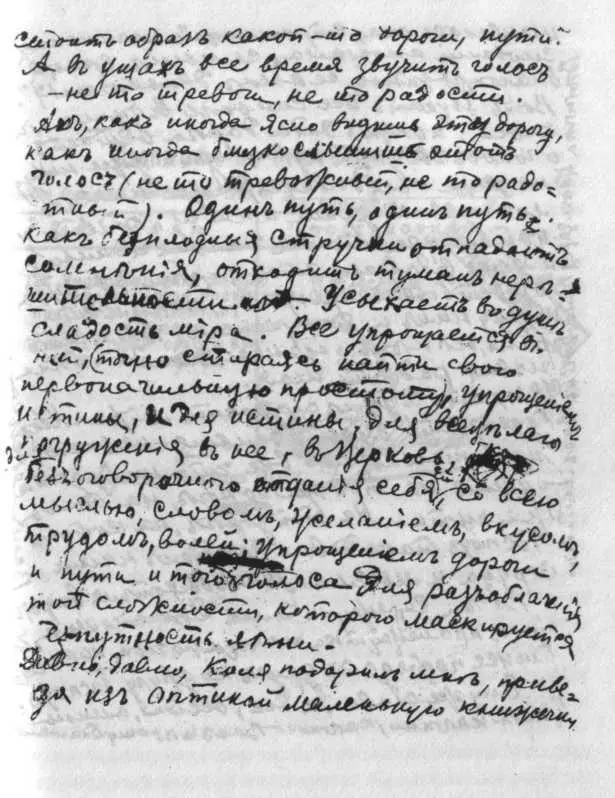 стоитъ образъ какой-то дороги, пути.
А въ ушахъ все время звучитъ голосъ
— не то тревоги, не то радости.
Ахъ, какъ иногда ясно видишь эту дорогу,
какъ иногда близко слышишь этотъ
голосъ (не то тревожный, не то радо-
стный). Одинъ путь, одинъ путь.
Какъ безплодныя стручки отпадаютъ
сомнѣнія, отходитъ туманъ нерѣ-
шительности. Усыхаетъ въ душѣ
сладость міра. Все упрощается въ
ней, (точно стараясь найти свою
первоначальную простоту), упрощеніемъ
истины, и для истины, для всецѣлаго
погруженія въ нее, въ Церковь,
для безоговорочного отданія себя, со всею
мыслью, словомъ, желаніемъ, вкусомъ,
трудомъ, волей; упрощеніемъ дороги
и пути и того голоса для разоблаченія
той сложности, которою маскируется
лжи.
Давно, давно, Коля подарилъ мнѣ, приве-
зя изъ Оптиной маленькую книжечку